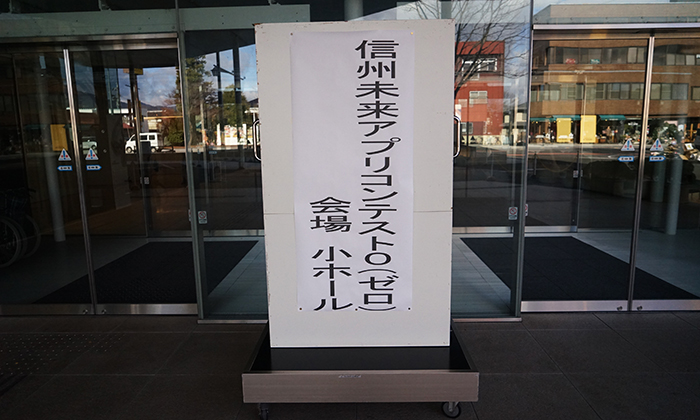 信州未来アプリコンテスト0(ゼロ)
会場 小ホール